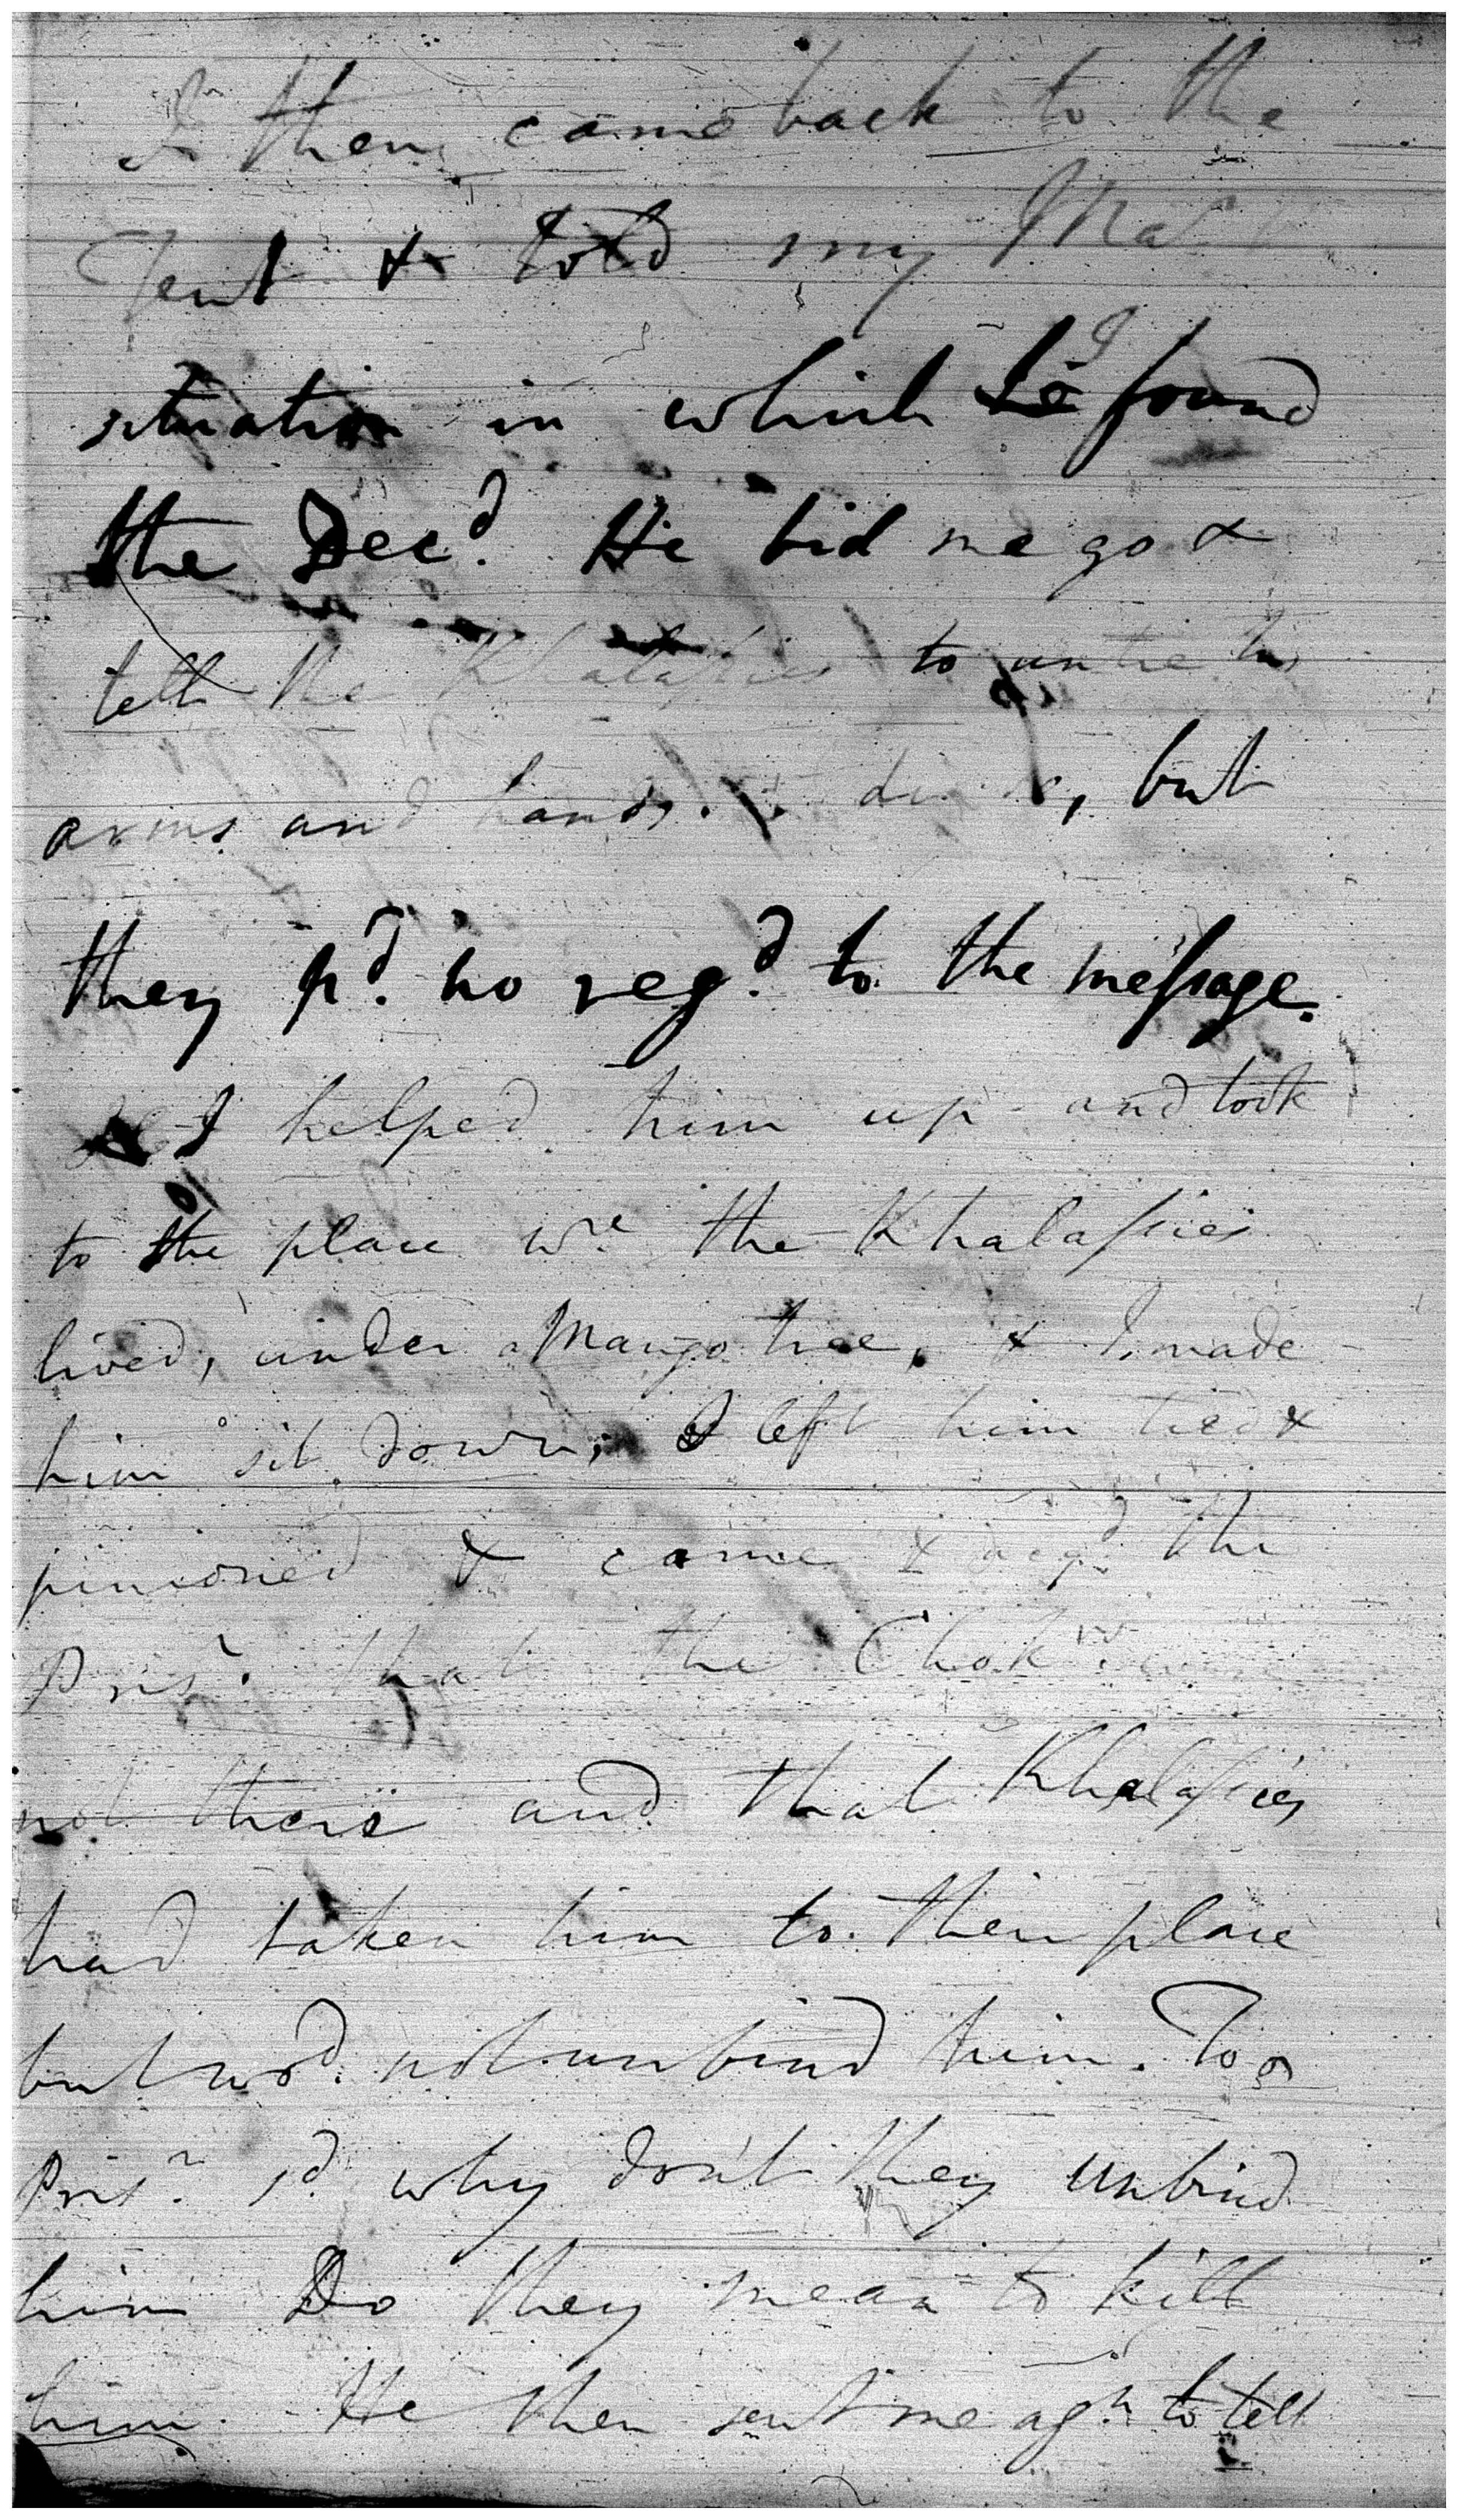 I then came back to the
Tent & told my
situation in which I found
the Decd. He bid me go &
tell the Khalassies to untie his
arms and hands. , but
they pd. no regd. to the message.
I helped him up and took
to the place wre the Khalassies
lived, under a Mango tree, & I made
him sit down; I left him tied &
pinioned & came & the
Prisr. that the Chokr.
not there and that Khalassies
had taken him to their place
but wod. not unbind him. To
Prisr. sd. why don't they unbind
him Do they mean to kill
him. He then sent me agn. to tell